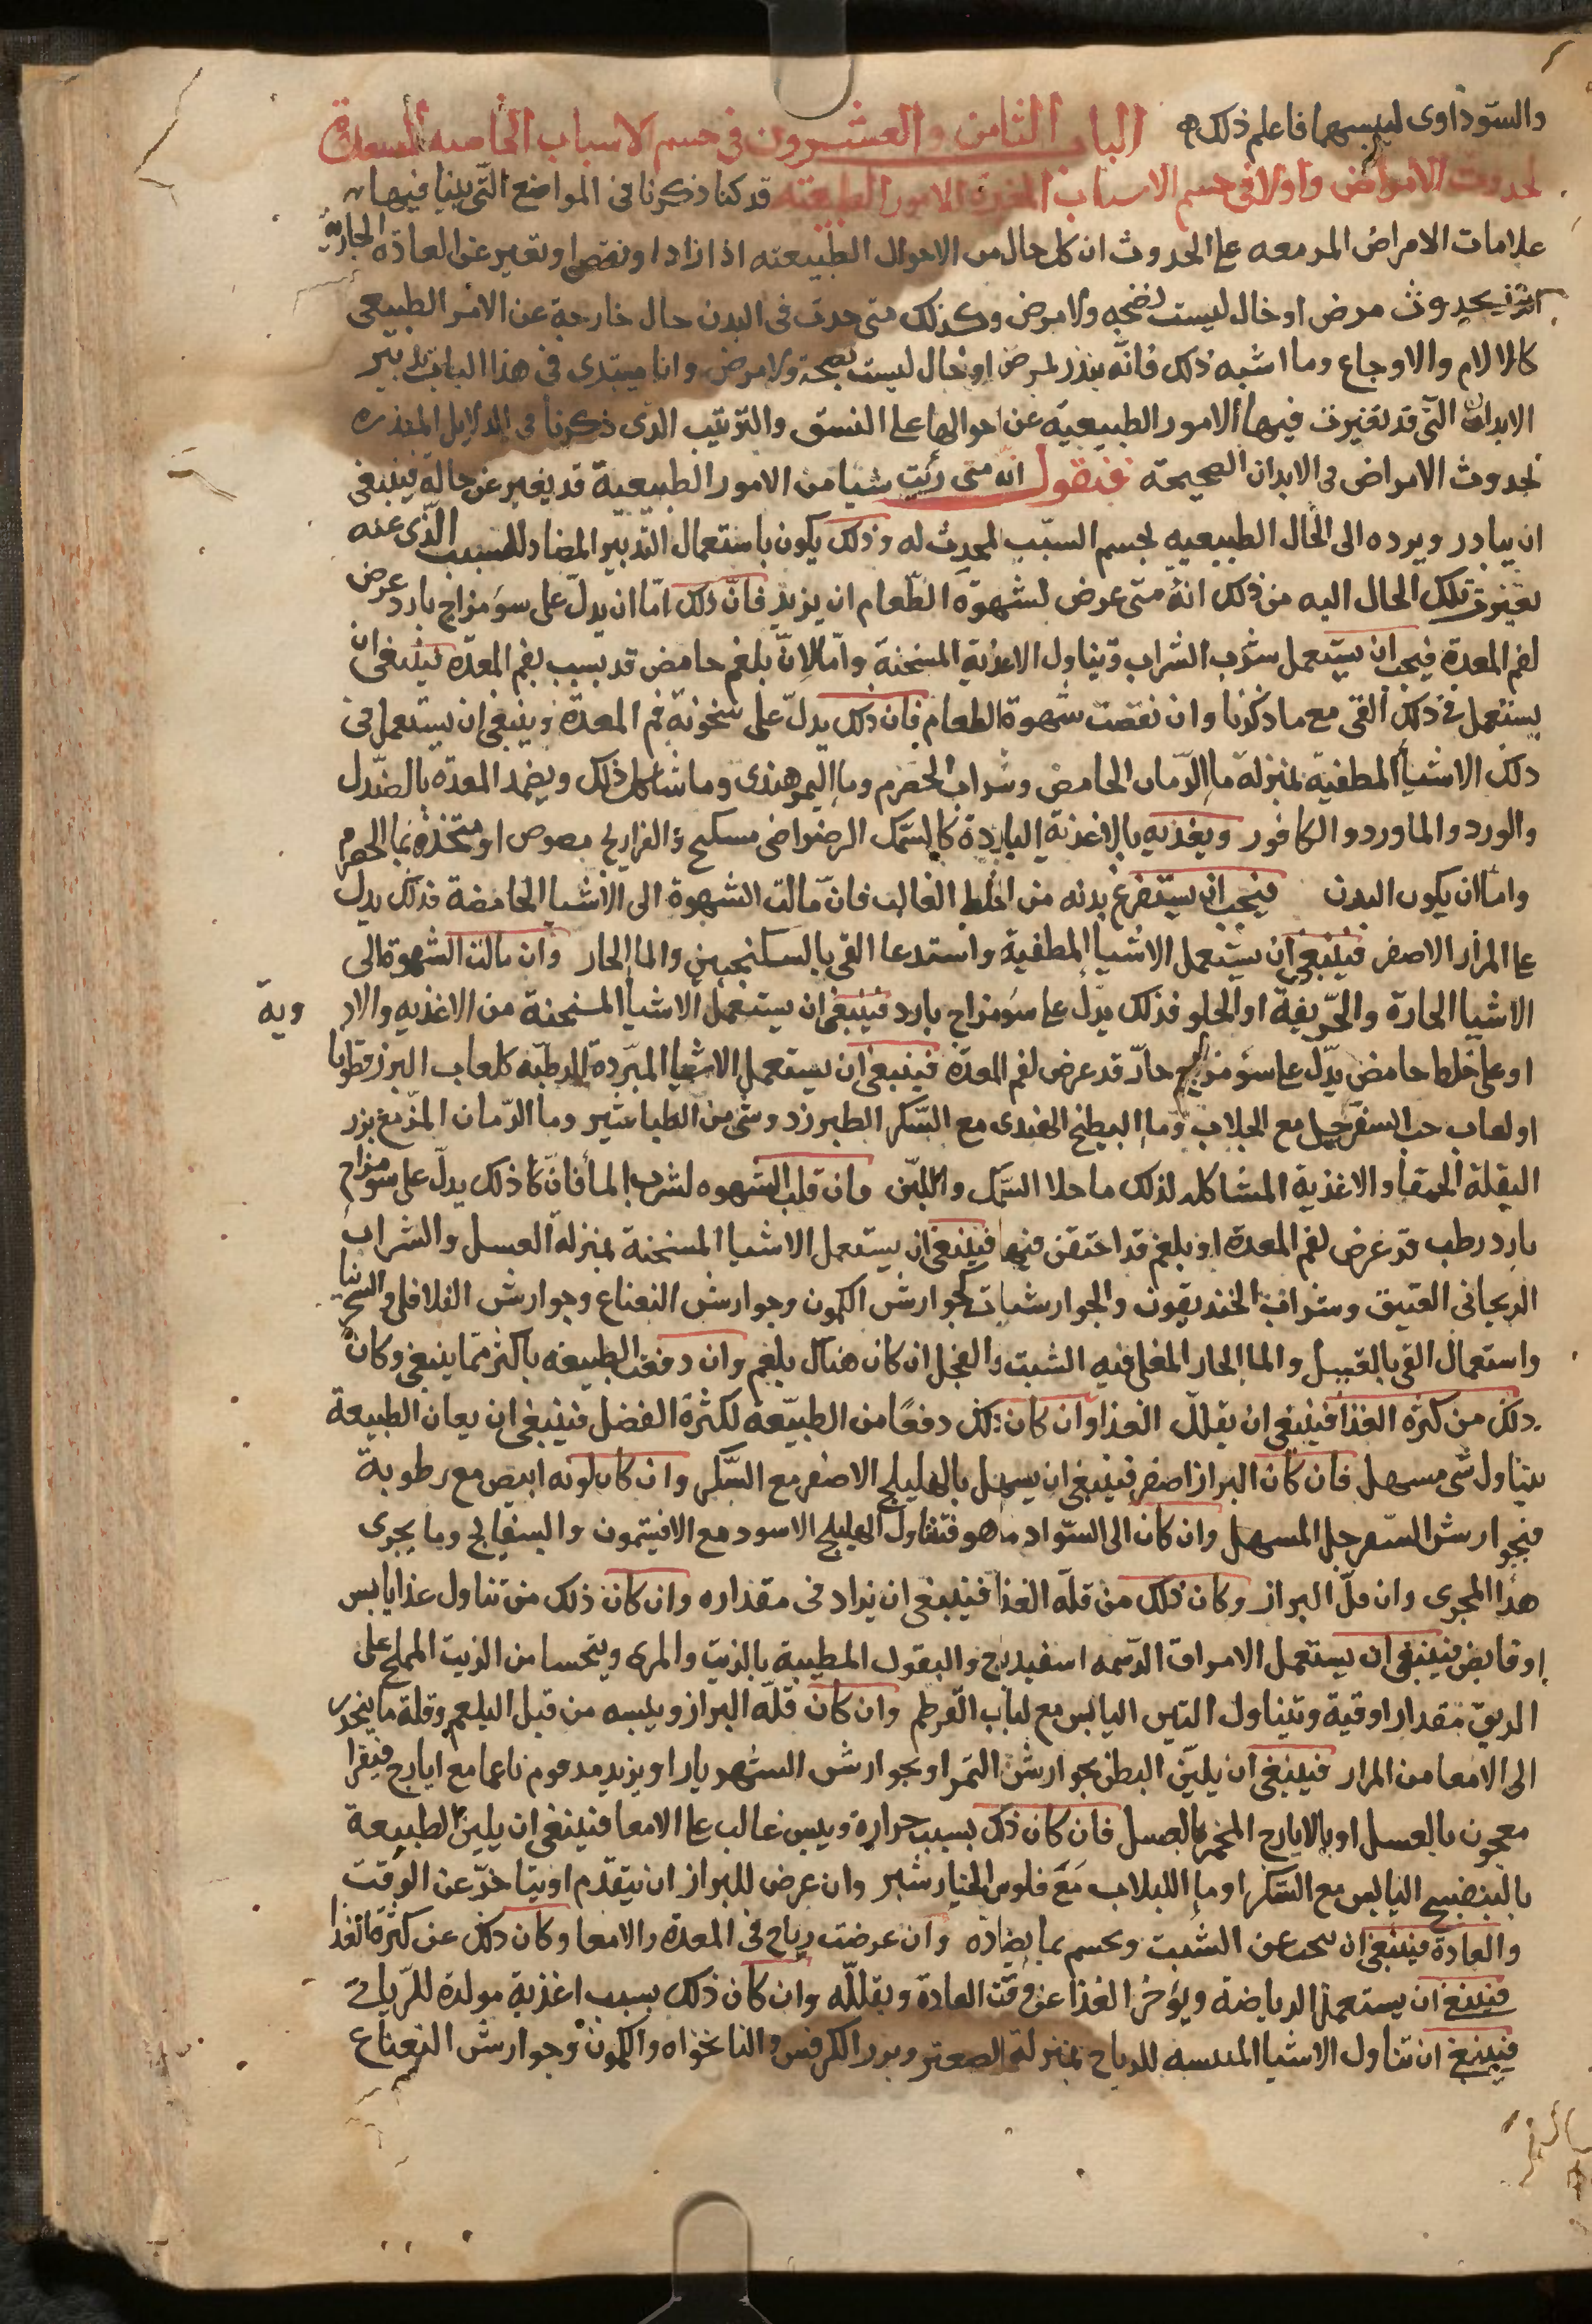 والسوداوى ليبسهما فاعلم ذلك الباب الثامن والعشرون فى حسم الاسباب الخاصه المسعدة
لحدوث الامراض واولا فى حسم الاسباب المغيرة للامور الطبيعيه قد كنا ذكرنا فى المواضع التى بينا فيها
علامات الامراض المزمعه على الحدوث ان كل حال من الاحوال الطبيعيه اذا زاد او نقص او تغير عن العادة الجارية
انذر بحدوث مرض او حال ليست بصحه ولا مرض وكذلك متى حدث فى البدن حال خارجة عن الامر الطبيعى
كالالام والاوجاع وما اشبه ذلك فانه ينذر لمرض او حال ليست بصحة ولا مرض وانا مبتدى فى هذا الباب بتدبير
الابدان التى قد تغيرت فيها الامور الطبيعية عن احوالها على النسق والترتيب الذى ذكرنا فى الدلايل المنذره
لحدوث الامراض فى الابدان الصحيحة فنقول انه متى رئيت شيا من الامور الطبيعية قد يغير عن حاله فينبغى
ان يبادر ويرده الى الحال الطبيعيه بحسم السبب المحدث له وذلك يكون باستعمال التدبير المضاد للسبب الذى عنه
تغيرت تلك الحال اليه من ذلك انه متى عرض لشهوة الطعام ان يزيد فان ذلك اما ان يدل على سو مزاج بارد عرض
لفم المعدة فيجب ان يستعمل شرب الشراب وتناول الاغذية المسخنة واما لان بلغم حامض قد بسبب بفم المعده فينبغى ان
يستعمل فى ذلك القى مع ما ذكرنا وان نقصت شهوة الطعام فان ذلك يدل على سخونة فم المعدة وينبغى ان يستعمل فى
ذلك الاشيا المطفية بمنزلة ما الرمان الحامض وشراب الحصرم وما التمر هندى وما شاكل ذلك ويضمد المعده بالصندل
والورد والماورد والكافور ويغذيه بالاغذية الباردة كالسمك الرضراضى مسكبج والفراريج مصوص او متخذة بما الحصرم
واما ان يكون البدن فيجب ان يستفرغ بدنه من الخلط الغالب فان مالت الشهوة الى الاشيا الحامضة فذلك يدل
على المرار الاصفر فينبغى ان يستعمل الاشيا المطفية واستدعا القى بالسكنجبين والما الحار وان مالت الشهوة الى
الاشيا الحارة والحريفة او الحلو فذلك يدل على سو مزاج بارد فينبغى ان يستعمل الاشيا المسخنة من الاغذيه والادوية
او على خلط حامض يدل على سو مزاج حاد قد عرض لفم المعدة فينبغى ان يستعمل الاشيا المبردة المرطبه كلعاب البزرقطونا
او لعاب حب السفرجل مع الجلاب وما البطيخ الهندى مع السكر الطبرزد وشى من الطباشير وما الرمان المز مع بزر
البقلة الحمقا والاغذية المشاكله لذلك ما خلا السمك واللبن وان قلت الشهوه لشرب الما فان كا ذلك يدل على سو مزاج
بارد رطب قد عرض لفم المعدة او بلغم قد احتقن فيها فينبغى ان يستعمل الاشيا المسخنة بمنزلة العسل والشراب
الريحانى العتيق وشراب الخنديقون والجوارشيات كجوارش الكمون وجوارش النعناع وجوارش الفلافلى والسجزنيا
واستعمال القى بالقيبل والما الحار المغلى فيه الشبت والفجل ان كان هناك بلغم وان دفعت الطبيعه باكثر مما ينبغى وكان
ذلك من كثرة الغذا فينبغى ان يقلل الغذا وان كان ذلك دفعا من الطبيعة لكثرة الفضل فينبغى ان يعان الطبيعة
بتناول شى مسهل فان كان البراز اصفر فينبغى ان يسهل بالهليلج الاصفر مع السكر وان كان لونه ابيض مع رطوبة
فبجوارش السفرجل المسهل وان كان الى السواد ما هو فتناول الهليلج الاسود مع الافيتمون والبسفايج وما يجرى
هذا المجرى وان قل البراز وكان ذلك من قلة الغذا فينبغى ان يزاد فى مقداره وان كان ذلك من تناول غذا يابس
او قابض فينبغى ان يستعمل الامراق الدسمه اسفيدباج والبقول المطيبة بالزيت والمرى ويتحسا من الزيت المملح على
الريق مقدار اوقية وتناول التين اليابس مع لباب القرطم وان كان قلة البراز ويبسه من قبل البلغم وقلة ما ينحدر
الى الامعا من المرار فينبغى ان يلين البطن بجوارش التمر او بجوارش الشهرياران او يزيد مدقوم ناعما مع ايارج فيقرا
معجون بالعسل او بالايارج المخمر بالعسل فان كان ذلك بسبب حرارة ويبس غالب على الامعا فينبغى ان يلين الطبيعة
بالبنفسج اليابس مع السكر او ما اللبلاب مع فلوس الخيارشنبر وان عرض للبراز ان يتقدم او يتاخر عن الوقت
والعادة فينبغى ان يبحث عن السبب ويحسم بما يضاده وان عرضت رياح فى المعدة والامعا وكان ذلك عن كثرة الغذا
فينبغى ان يستعمل الرياضة ويؤخر الغذا عن وقت العادة ويقلله وان كان ذلك بسبب اغذية مولدة للرياح
فينبغى ان تناول الاشيا المدسسه للرياح بمنزلة الصعتر وبزر الكرفس والنانخواه والكمون وجوارش النعناع